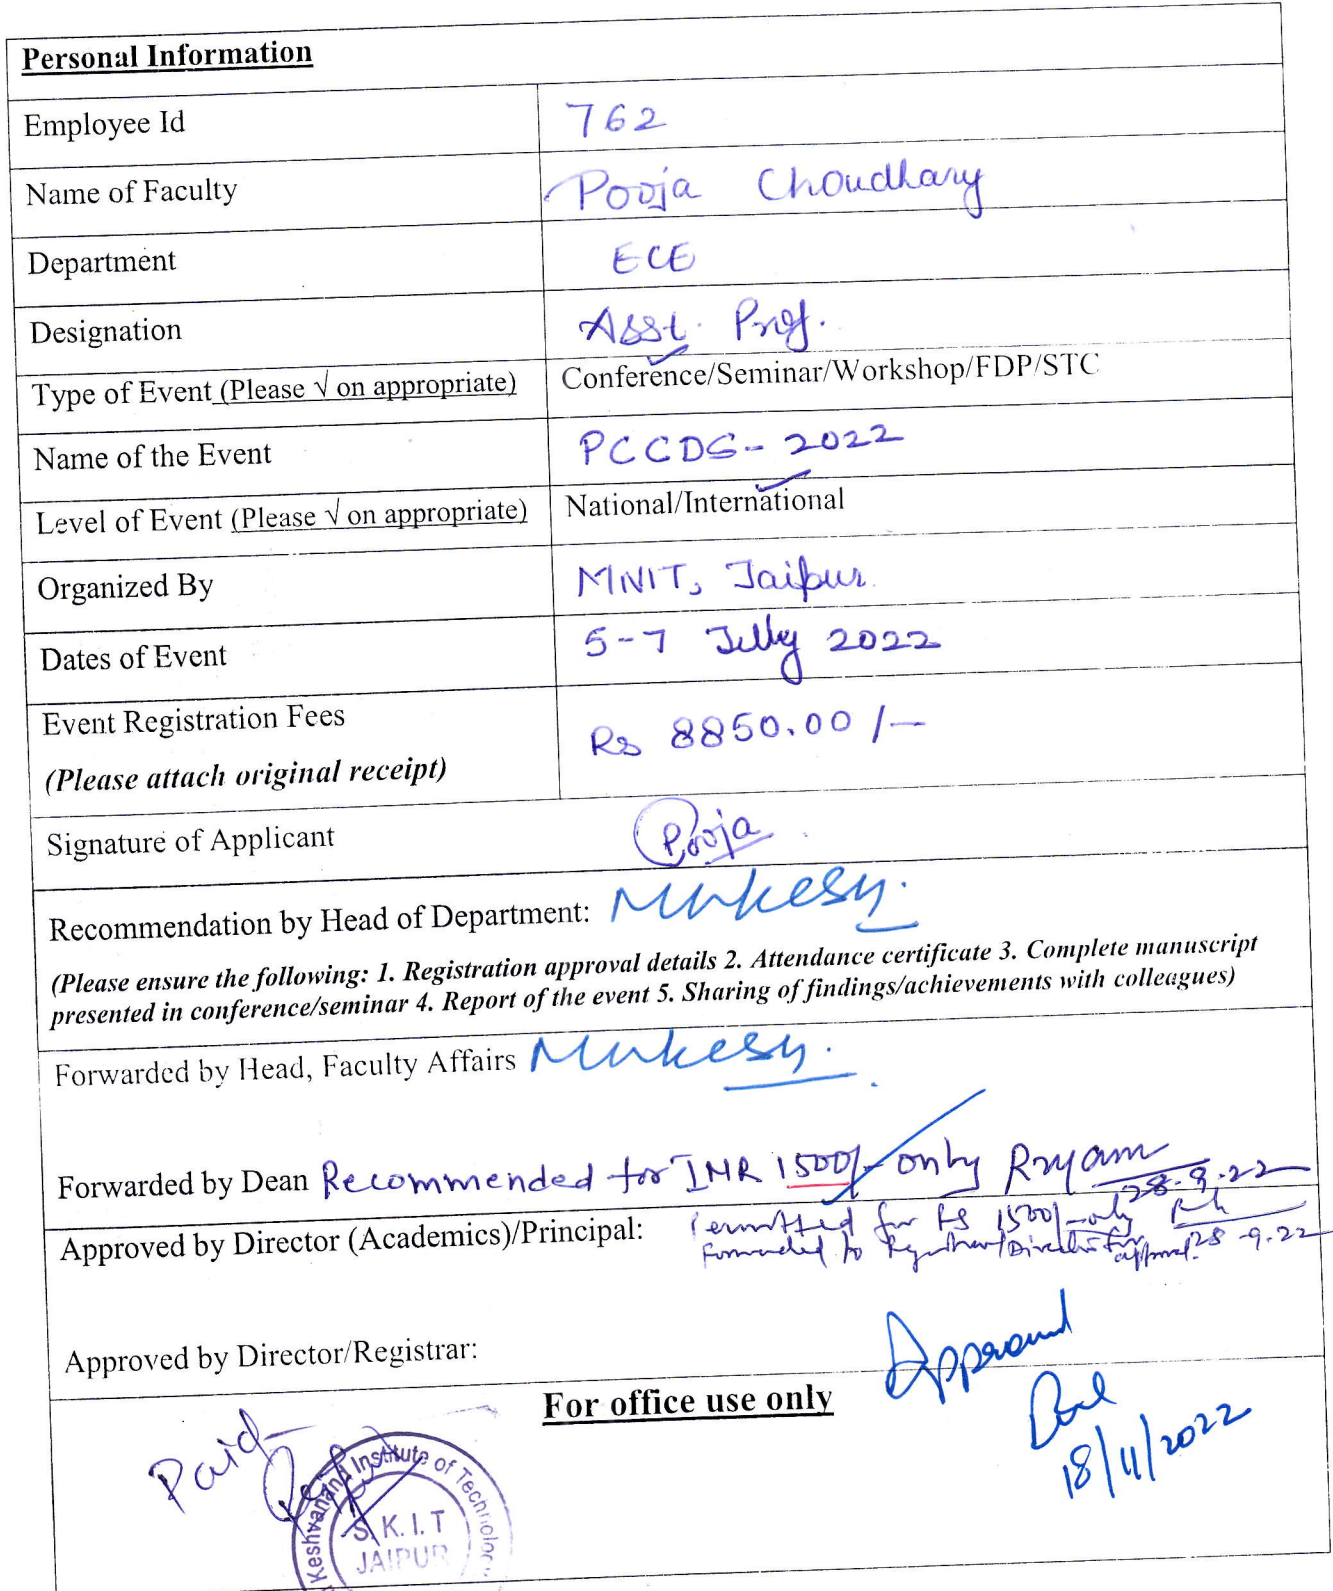 Personal Information
Employee Id 762
Name of Faculty Pooja Choudhary
Department ECE
Designation Asst. Prof.
Type of Event (Please √ on appropriate) Conference/Seminar/Workshop/FDP/STC
Name of the Event PCCDS-2022
Level of Event (Please √ on appropriate) National/International
Organized By MNIT, Jaipur
Dates of Event 5-7 July 2022
Event Registration Fees
(Please attach original receipt) Rs 8850.00/-
Signature of Applicant Pooja
Recommendation by Head of Department: Mukesh
(Please ensure the following: 1. Registration approval details 2. Attendance certificate 3. Complete manuscript
presented in conference/seminar 4. Report of the event 5. Sharing of findings/achievements with colleagues)
Forwarded by Head, Faculty Affairs Mukesh
Forwarded by Dean Recommended for INR 1500/- only
28.9.22
Approved by Director (Academics)/Principal: Permitted for Rs 1500/- only
Forwarded to Registrar/Director for approval. 28-9-22
Approved by Director/Registrar:
Approved
18/11/2022
For office use only
Paid
Keshvanand Institute of Technolog
S.K.I.T
JAIPUR